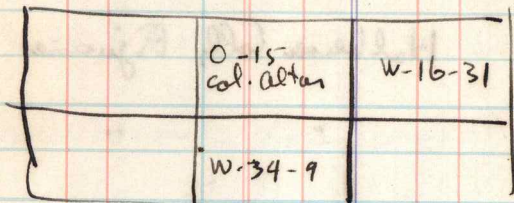 O-15
col. altar
W-16-31
W-34-9